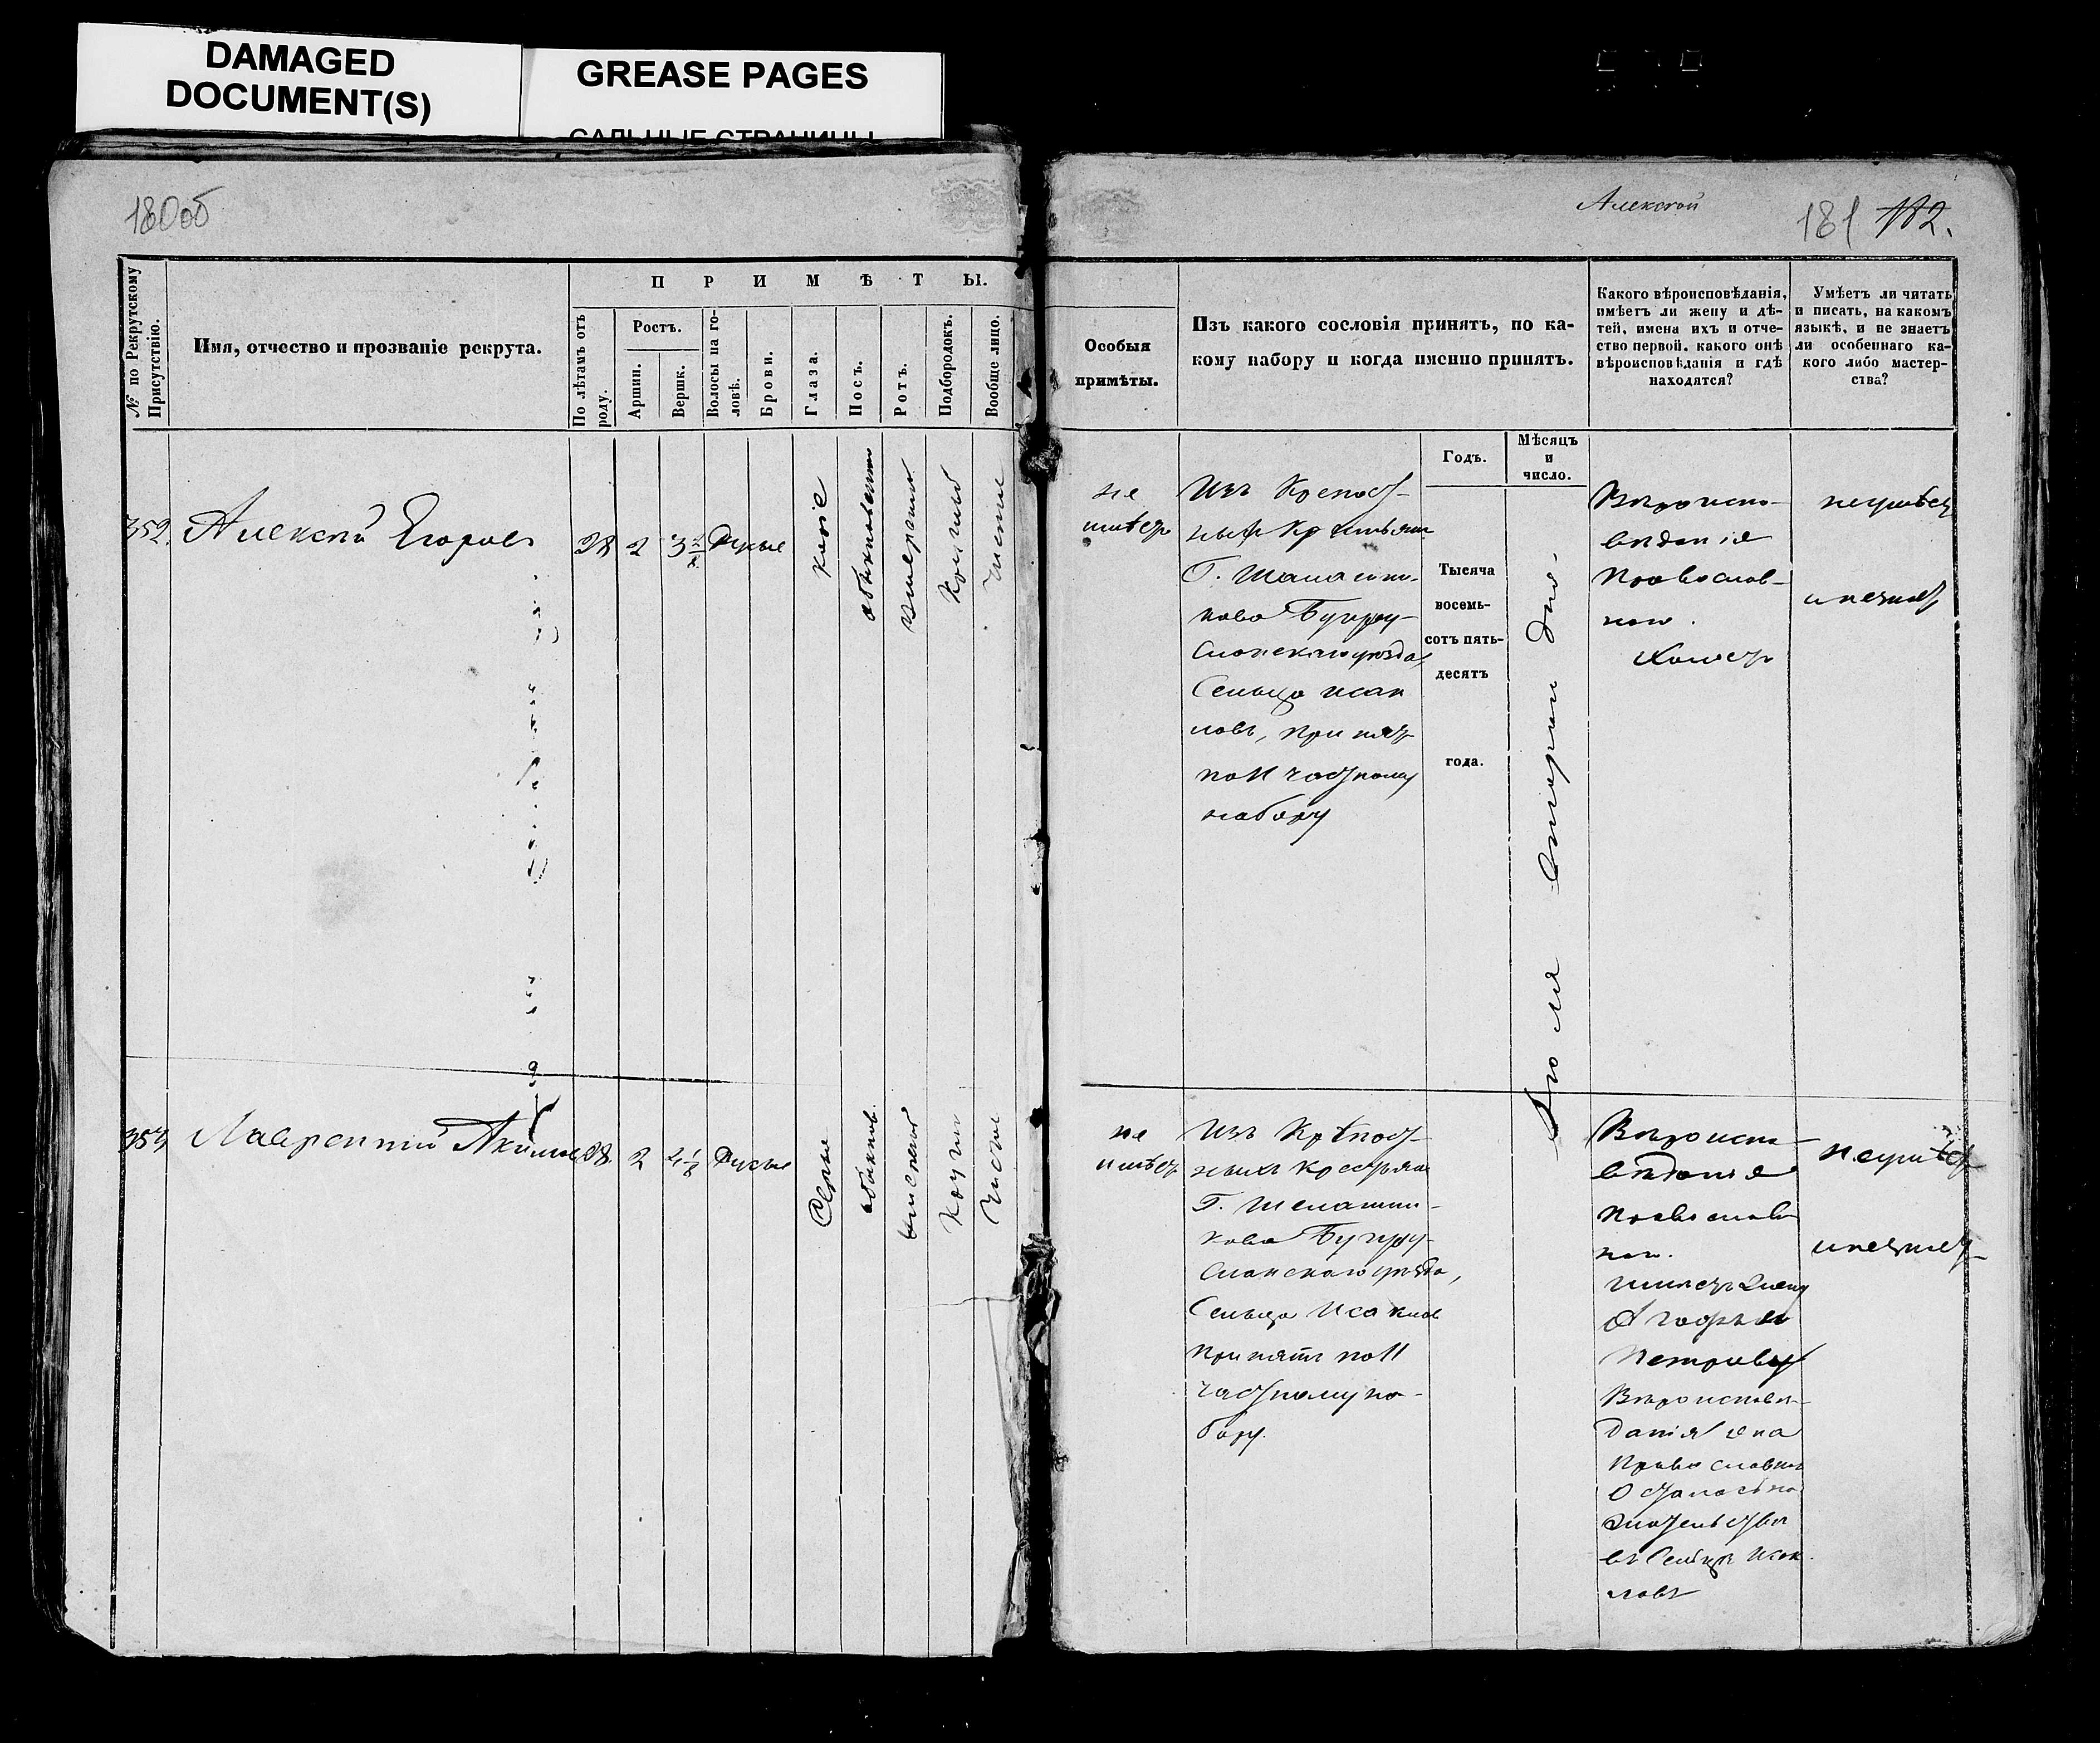 DAMAGED
DOCUMENT(S)
GREASE PAGES
САЛЬНЫЕ СТРАНИЦЫ
180об
Алексѣй
181 182.
№ по Рекрутскому Присутствію.
Имя, отчество и прозваніе рекрута.
ПРИМѢТЫ.
По лѣтамъ отъ роду.
Ростъ.
Аршин.
Вершк.
Волосы на головѣ.
Брови.
Глаза.
Носъ.
Ротъ.
Подбородокъ.
Вообще лицо.
Особыя
примѣты.
Изъ какого сословія принятъ, по ка-
кому набору и когда именно принятъ.
Годъ.
Мѣсяцъ
и
число.
Какого вѣроисповѣданія,
имѣетъ ли жену и дѣ-
тей, имена ихъ и отче-
ство первой, какого онѣ
вѣроисповѣданія и гдѣ
находятся?
Умѣетъ ли читать
и писать, на какомъ
языкѣ, и не знаетъ
ли особеннаго ка-
кого либо мастер-
ства?
352.
Алексѣй Егоровъ
28
2
3
Русые
каріе
обыкновенный
умѣренный
Круглый
Чистое
не
имѣетъ
Изъ Крепост-
ныхъ Крестьянъ
Г. Шалашни-
кова Бугуру-
сланскаго уѣзда,
Сельца Исак
ловъ, принятъ
по 11 частному
набору
Тысяча
восемь-
сотъ пять-
десятъ
года.
Іюля втораго дня.
Вѣроиспо-
вѣданія
Православ-
наго.
Холостъ
неумѣетъ
и незнаетъ
353
Лаврентій Акимовъ
28.
2
4 1/8
Русые
Серые
обыкнов.
Чистое
не
имѣетъ
Изъ Крѣпост-
ныхъ Крестьянъ
Г. Шелашни-
кова Бугуру-
сланскаго уѣзда,
Сельца Исаклов
принятъ по 11
частному на-
бору.
Вѣроиспо-
вѣданія
Православ
наго.
имѣетъ жену
Агафью
Петрову
Вѣроисповѣ-
данія она
Православнаго
Осталась на
жительствѣ
въ Сельцѣ Исак-
ловѣ
неумѣетъ
и незнаетъ